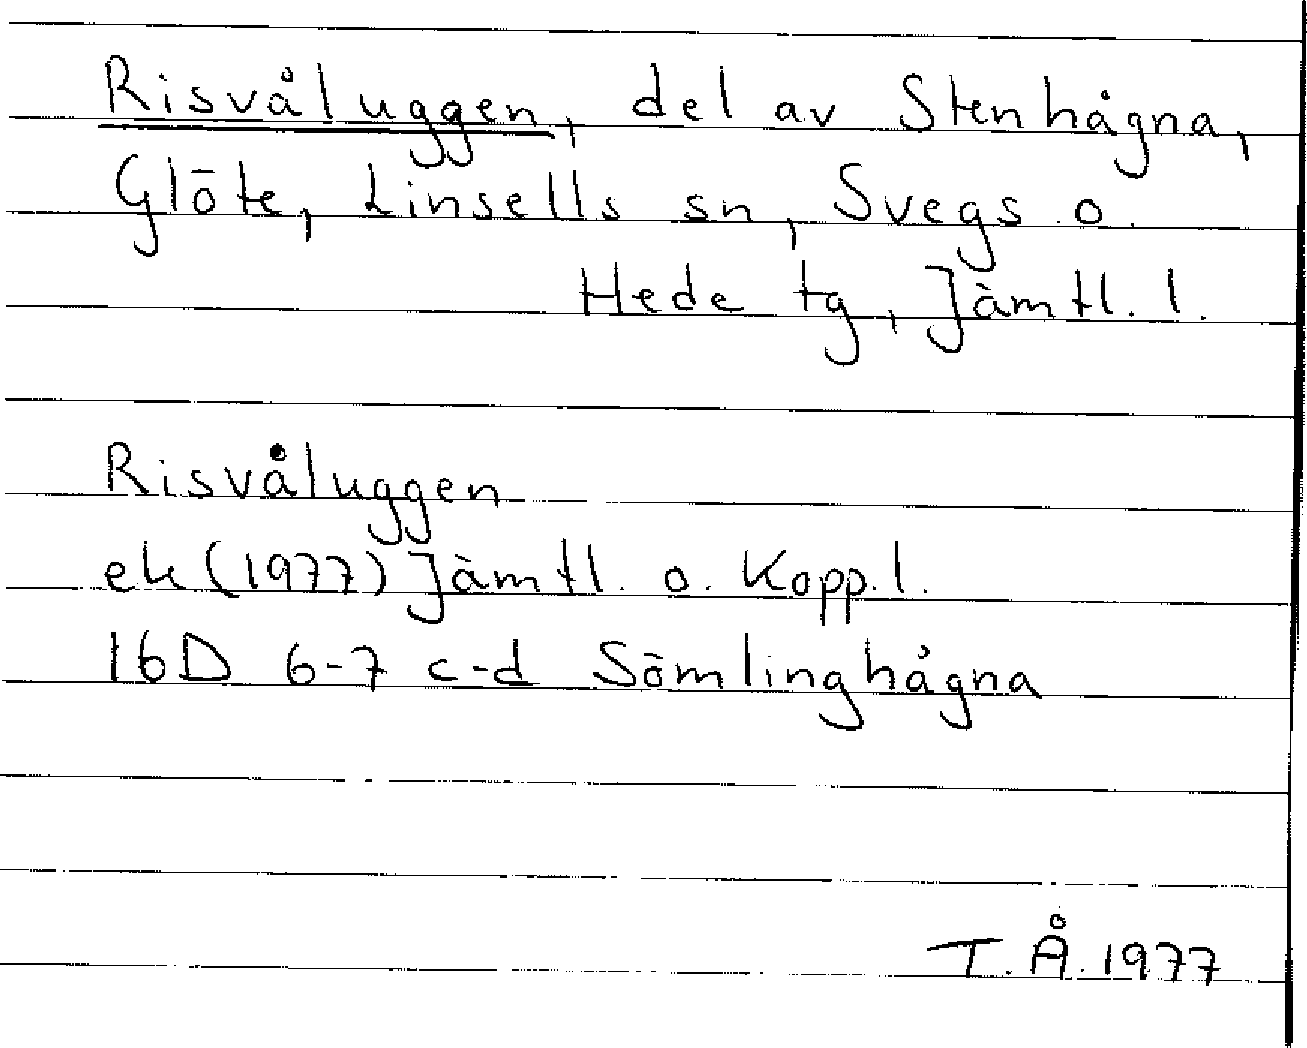 Risvåluggen, del av Stenhågna,
Glöte, Linsells sn, Svegs o.
Hede tg, Jämtl. l.
Risvåluggen
ek (1977) Jämtl. o. Kopp. l.
16D 6-7 c-d Sömlinghågna
T. Å. 1977